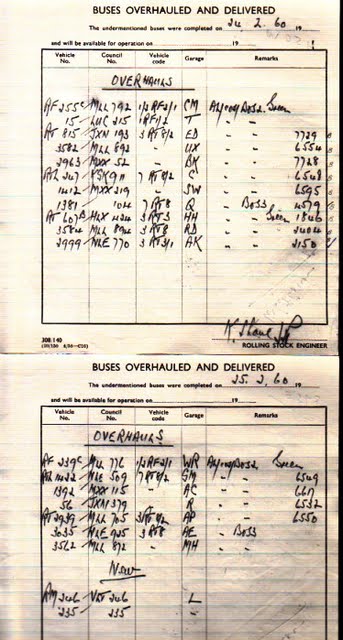 BUSES OVERHAULED AND DELIVERED
The undermentioned buses were completed on 24. 2. 60 19
and will be available for operation on 19
Vehicle No. Council No. Vehicle code Garage Remarks
OVERHAULS
RF 255 MLL 792 1/2RF2/1 CM Green
15 LUC 215 1RF1/2 T " "
RT 815 JXN 193 3RT8/2 ED " " 7729
3582 MLL 692 UX " " 6554
2963 MXX 52 " BK " " 7728
KGK 911 7RT8/2 C " " 6548
1412 MXX 219 " SW " " 6595
1381 1024 7 RT8 Q " Boss 4579
RT 607 HLX 424 3 RT3 HH " Green 1846
3584 MLL 894 3 RT8 RD " " 2404
2999 NLE 770 3 RT3/1 AK " " 2150
ROLLING STOCK ENGINEER
308/140
BUSES OVERHAULED AND DELIVERED
The undermentioned buses were completed on 25. 2. 60 19
and will be available for operation on 19
Vehicle No. Council No. Vehicle code Garage Remarks
OVERHAULS
RF 239 MLL 776 1/2RF2/1 WR Green
509 7RT8/2 GM " " 6549
1392 MXX 115 " AC " " 6617
56 JXN 379 " R " " 6532
RT 2939 MLL 705 3RT8/2 AP " " 6550
3035 925 3RT8 AE " Boss
3562 MLL 872 " MH " "
New
RM 246 VLT 246 L
235 235 "